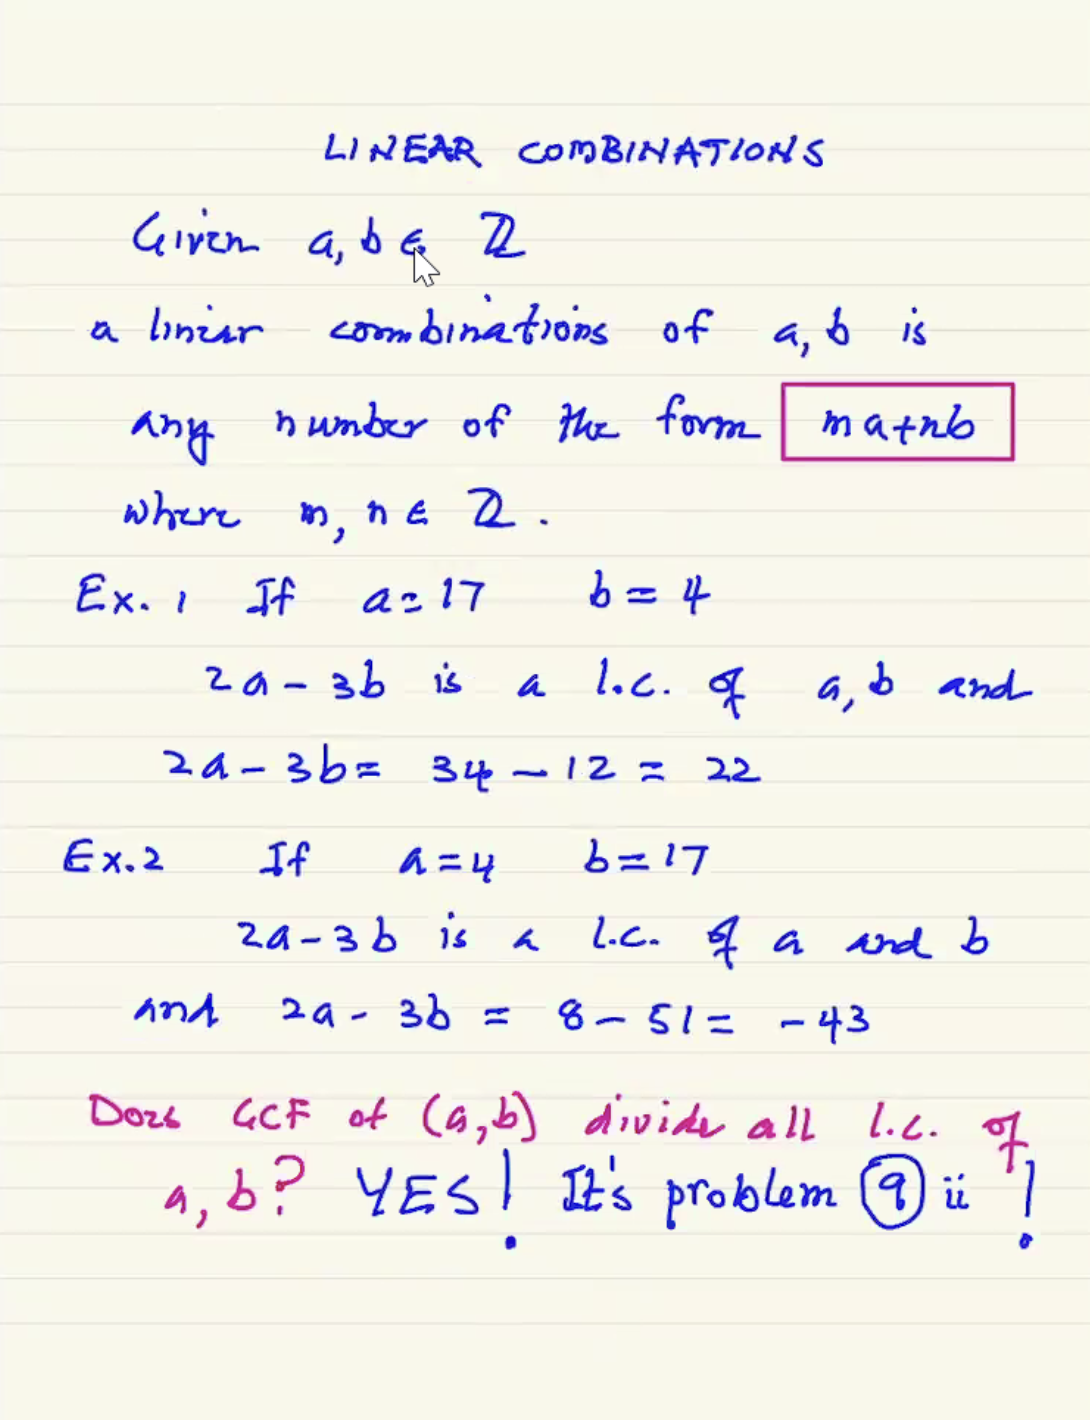 LINEAR COMBINATIONS
Given a, b ∈ ℤ
a linear combinations of a, b is
any number of the form ma+nb
where m, n ∈ ℤ.
Ex. 1 If a=17 b=4
2a-3b is a l.c. of a, b and
2a-3b= 34-12 = 22
Ex.2 If a=4 b=17
2a-3b is a l.c. of a and b
and 2a-3b = 8-51= -43
Does GCF of (a,b) divide all l.c. of
a, b? YES! It's problem 9 ii !